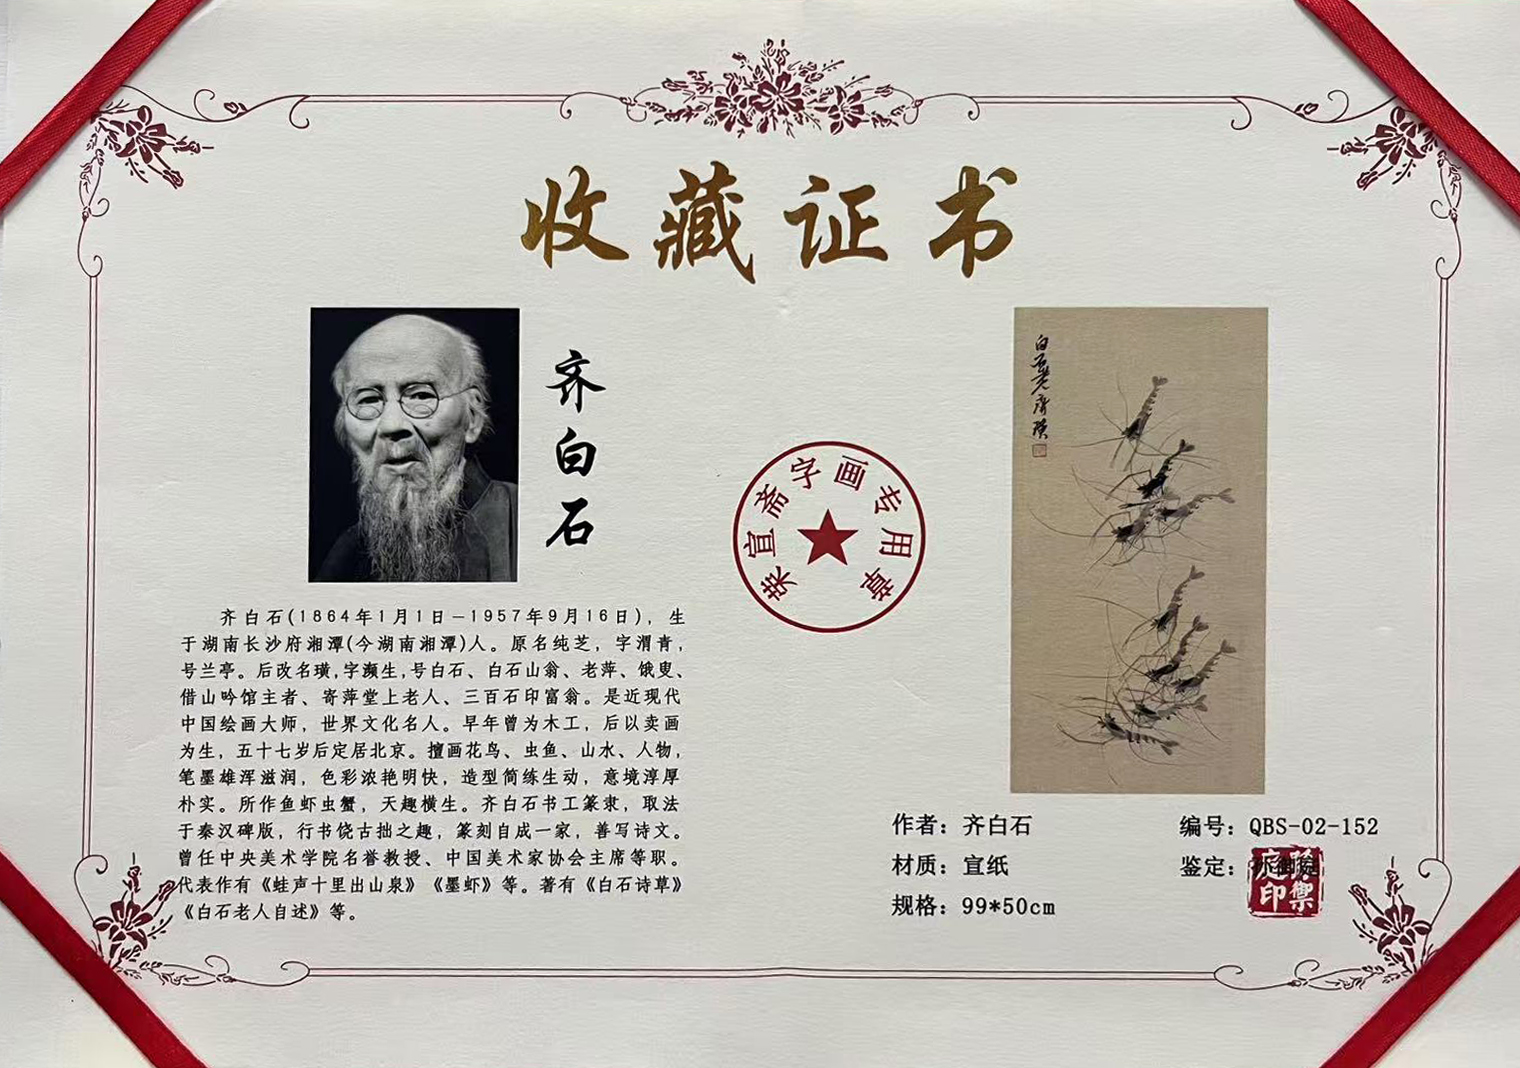 收藏证书
齐白石
齐白石(1864年1月1日—1957年9月16日)，生
于湖南长沙府湘潭(今湖南湘潭)人。原名纯芝，字渭青，
号兰亭。后改名璜，字濒生，号白石、白石山翁、老萍、饿叟、
借山吟馆主者、寄萍堂上老人、三百石印富翁。是近现代
中国绘画大师，世界文化名人。早年曾为木工，后以卖画
为生，五十七岁后定居北京。擅画花鸟、虫鱼、山水、人物，
笔墨雄浑滋润，色彩浓艳明快，造型简练生动，意境淳厚
朴实。所作鱼虾虫蟹，天趣横生。齐白石书工篆隶，取法
于秦汉碑版，行书饶古拙之趣，篆刻自成一家，善写诗文。
曾任中央美术学院名誉教授、中国美术家协会主席等职。
代表作有《蛙声十里出山泉》《墨虾》等。著有《白石诗草》
《白石老人自述》等。
荣宣斋字画专用章
白石老人齐璜
作者：齐白石
材质：宣纸
规格：99*50cm
编号：QBS-02-152
鉴定：